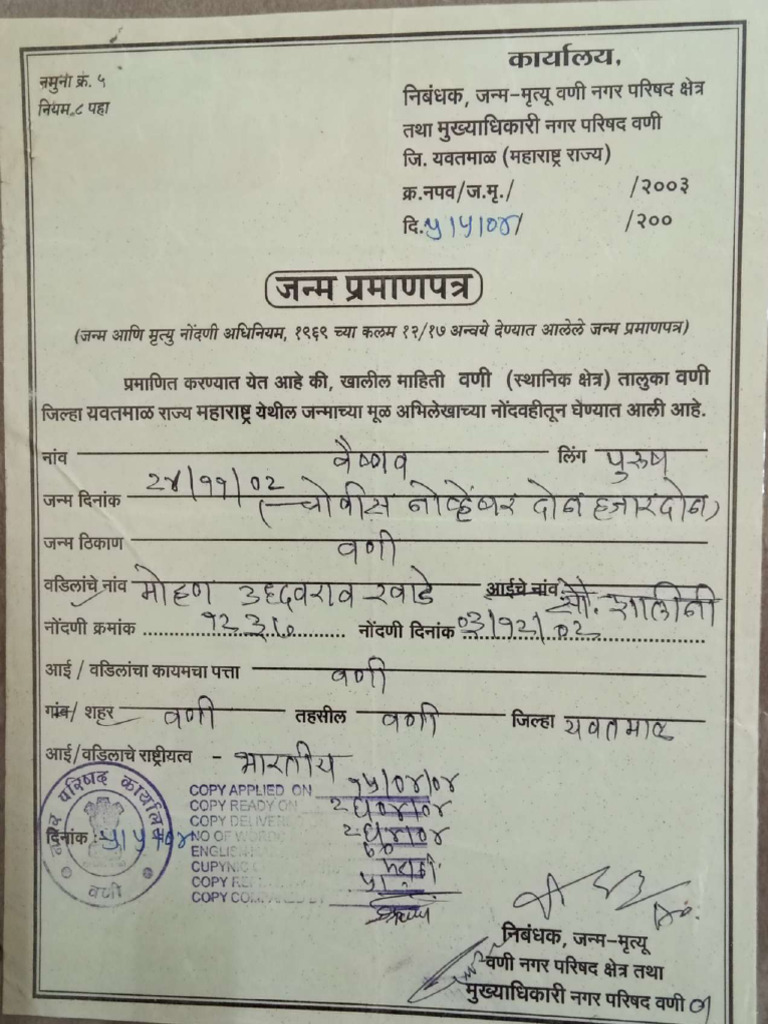 नमुना क्रं. ५
नियम.८ पहा
कार्यालय,
निबंधक, जन्म-मृत्यू वणी नगर परिषद क्षेत्र
तथा मुख्याधिकारी नगर परिषद वणी
जि. यवतमाळ (महाराष्ट्र राज्य)
क्र.नपव/ज.मृ./ /२००३
दि.५/५/०४/ /२००
जन्म प्रमाणपत्र
(जन्म आणि मृत्यु नोंदणी अधिनियम, १९६९ च्या कलम १२/१७ अन्वये देण्यात आलेले जन्म प्रमाणपत्र)
प्रमाणित करण्यात येत आहे की, खालील माहिती वणी (स्थानिक क्षेत्र) तालुका वणी
जिल्हा यवतमाळ राज्य महाराष्ट्र येथील जन्माच्या मूळ अभिलेखाच्या नोंदवहीतून घेण्यात आली आहे.
नांव वैष्णव लिंग पुरुष
जन्म दिनांक २४/११/०२ (चोवीस नोव्हेंबर दोन हजार दोन)
जन्म ठिकाण वणी
वडिलांचे नांव मोहण उध्दवराव खाडे आईचे नांव सौ. शालीनी
नोंदणी क्रमांक नोंदणी दिनांक ०३/१२/०२
आई / वडिलांचा कायमचा पत्ता वणी
गांव/ शहर वणी तहसील वणी जिल्हा यवतमाळ
आई/वडिलाचे राष्ट्रीयत्व - भारतीय
नगर परिषद कार्यालय
वणी
दिनांक : ५/५/०४
COPY APPLIED ON १५/०४/०४
COPY READY ON
COPY
NO OF WORDS
ENGLISH
COPY
COPY
निबंधक, जन्म-मृत्यू
वणी नगर परिषद क्षेत्र तथा
मुख्याधिकारी नगर परिषद वणी